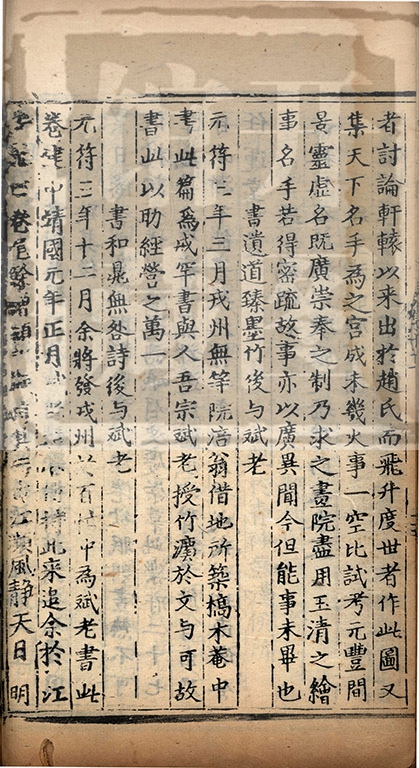 者討論軒轅以来出於趙氏而飛升度世者作此圖又
集天下名手為之宮成未幾火事一空比試考元豐間
景靈虛名既廣崇奉之制乃求之畫院盡用玉清之繪
事名手若得密疏故事亦以廣異聞今但能事未畢也
書遺道臻墨竹後与斌老
元符三年三月戎州無等院涪翁借地所築槁木菴中
書此篇為成罕書與人吾宗斌老授竹瀍於文与可故
書此以助經營之萬一
書和晁無咎詩後与斌老
元符三年十二月余將發戎州以百忙中為斌老書此
卷建中靖國元年正月 持此来追余於江
卷尾 風靜天日明